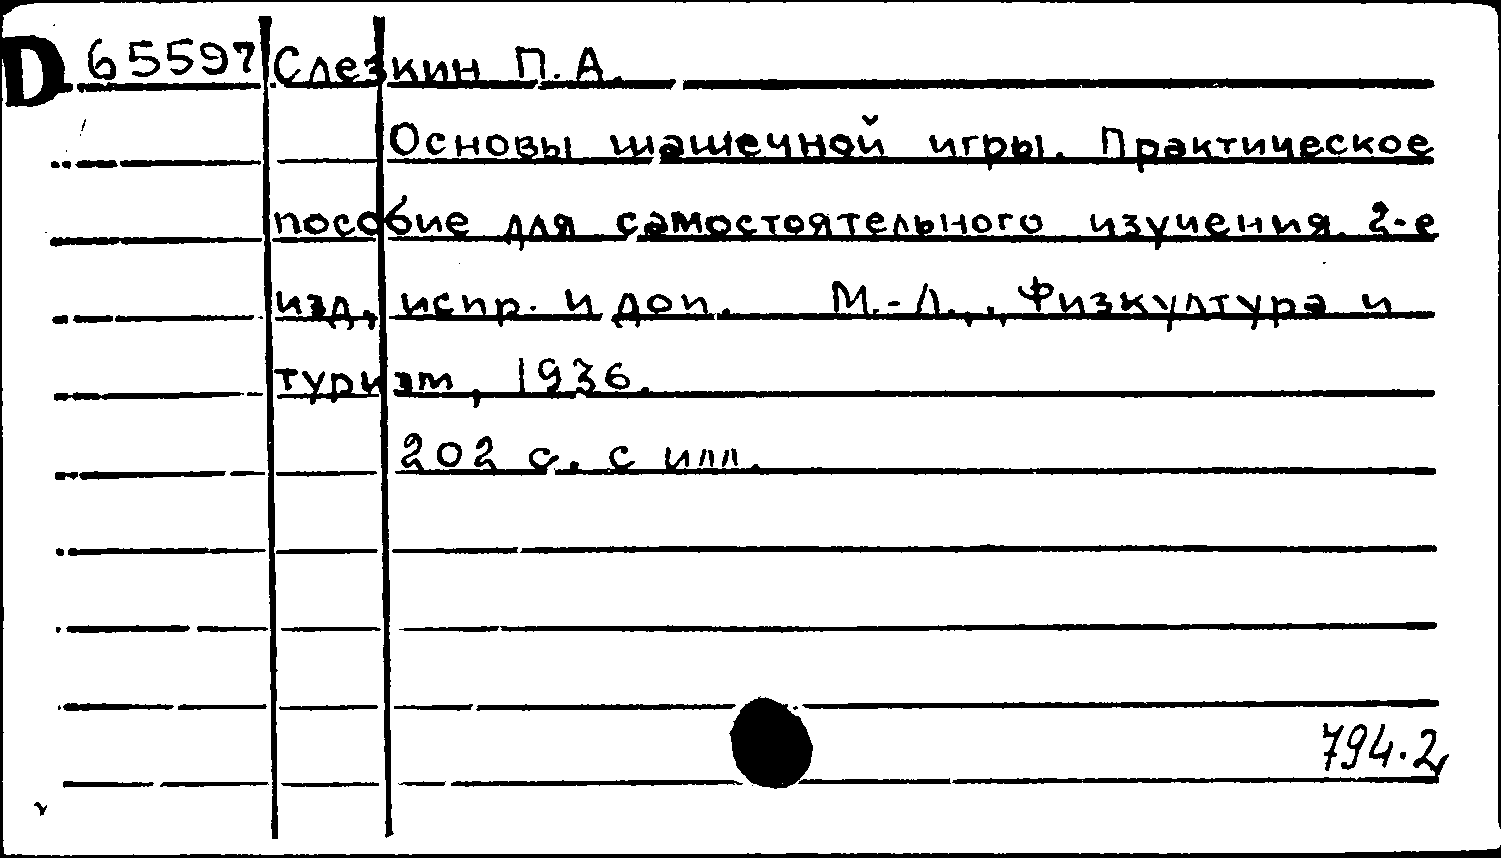 D 65597 Слезкин П. А.
Основы шашечной игры. Практическое
пособие для самостоятельного изучения. 2-е
изд., испр. и доп. М.-Л., Физкултура и
туризм, 1936.
202 с. с илл.
794.2